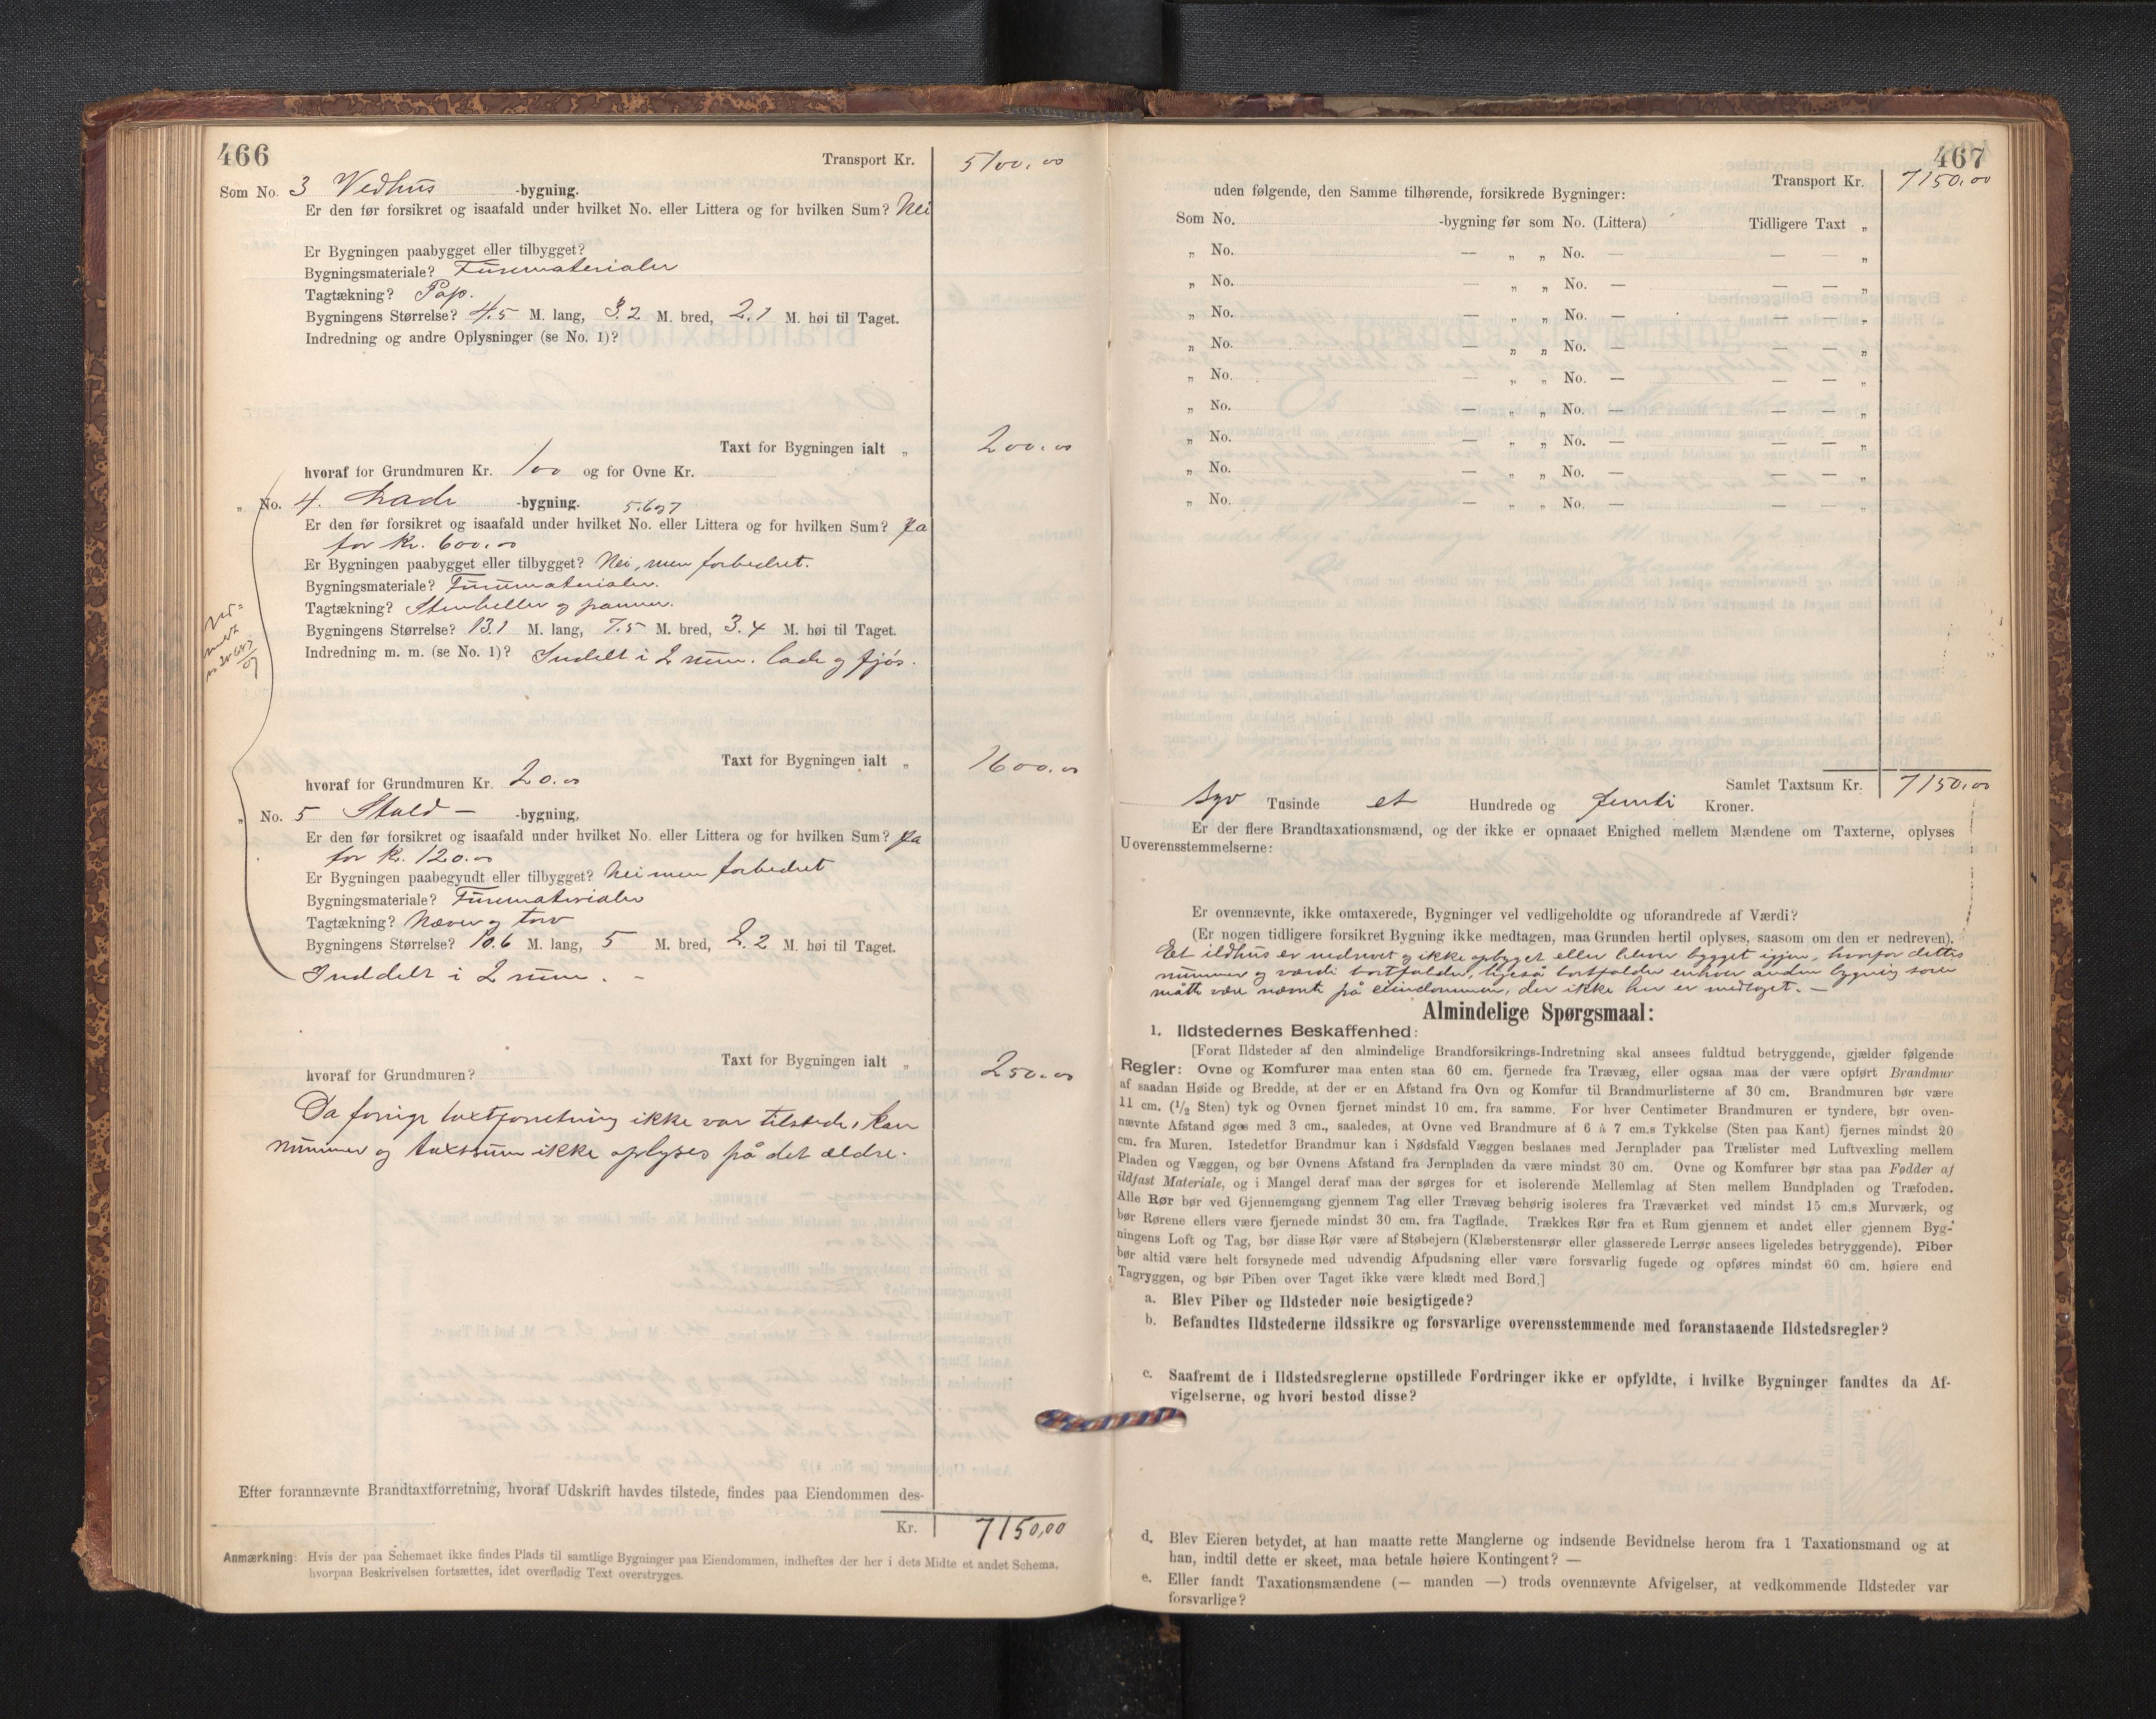 466
Transport Kr. 5100.00
Som No. 3 Vedhus -bygning.
Er den før forsikret og isaafald under hvilket No. eller Littera og for hvilken Sum? Nei
Er Bygningen paabygget eller tilbygget?
Bygningsmateriale? Furumaterialer
Tagtækning? Pap.
Bygningens Størrelse? 4.5 M. lang, 3.2 M. bred, 2.1 M. høi til Taget.
Indredning og andre Oplysninger (se No. 1)?
Taxt for Bygningen ialt „ 200.00
hvoraf for Grundmuren Kr. 100 og for Ovne Kr.
„ No. 4. Lade -bygning. 5.6 og 7
Er den før forsikret og isaafald under hvilket No. eller Littera og for hvilken Sum? Ja
for Kr. 600.00
Er Bygningen paabygget eller tilbygget? Nei, men forbedret.
Bygningsmateriale? Furumaterialer.
Tagtækning? Stenheller og panner.
Bygningens Størrelse? 13.1 M. lang, 7.5 M. bred, 3.4 M. høi til Taget.
Indredning m. m. (se No. 1)? Inddelt i 2 rum. lade og fjøs.
Taxt for Bygningen ialt „ 1600.00
hvoraf for Grundmuren Kr. 20.00
„ No. 5 Stald – -bygning,
Er den før forsikret og isaafald under hvilket No. eller Littera og for hvilken Sum? Ja
for Kr. 120.00
Er Bygningen paabegyndt eller tilbygget? Nei men forbedret
Bygningsmateriale? Furumaterialer
Tagtækning? Næver og torv
Bygningens Størrelse? 10.6 M. lang, 5 M. bred, 2.2 M. høi til Taget.
Inddelt i 2 rum. –
Taxt for Bygningen ialt „ 250.00
hvoraf for Grundmuren?
Da forrige taxtforretning ikke var tilstede, kan
nummer og taxtsum ikke oplyses på det ældre.
Efter forannævnte Brandtaxtforretning, hvoraf Udskrift havdes tilstede, findes paa Eiendommen des-
Kr. 7150,00
Anmærkning: Hvis der paa Schemaet ikke findes Plads til samtlige Bygninger paa Eiendommen, indheftes der her i dets Midte et andet Schema,
hvorpaa Beskrivelsen fortsættes, idet overflødig Text overstryges.
467
Transport Kr. 7150.00
uden følgende, den Samme tilhørende, forsikrede Bygninger:
Som No. -bygning før som No. (Littera) Tidligere Taxt „
„ No. — „ „ No. — — — „
„ No. — „ „ No. — — — „
„ No. — „ „ No. — — — „
„ No. — „ „ No. — — — „
„ No. — „ „ No. — — — „
„ No. — „ „ No. — — — „
„ No. — „ „ No. — — — „
„ No. — „ „ No. — — — „
„ No. — „ „ No. — — — „
Samlet Taxtsum Kr. 7150.00
Syv Tusinde et Hundrede og femti Kroner.
Er der flere Brandtaxationsmænd, og der ikke er opnaaet Enighed mellem Mændene om Taxterne, oplyses
Uoverensstemmelserne:
Er ovennævnte, ikke omtaxerede, Bygninger vel vedligeholdte og uforandrede af Værdi?
(Er nogen tidligere forsikret Bygning ikke medtagen, maa Grunden hertil oplyses, saasom om den er nedreven).
Et ildhus er nedrevet og ikke opbygget eller bliver bygget igjen, hvorfor dettes
nummer og værdi bortfalder, ligeså bortfalder enhver anden bygning som
måtte være nævnt på eiendommen, der ikke her er medtaget. –
Almindelige Spørgsmaal:
1. Ildstedernes Beskaffenhed:
[Forat Ildsteder af den almindelige Brandforsikrings-Indretning skal ansees fuldtud betryggende, gjælder følgende
Regler: Ovne og Komfurer maa enten staa 60 cm. fjernede fra Trævæg, eller ogsaa maa der være opført Brandmur
af saadan Høide og Bredde, at der er en Afstand fra Ovn og Komfur til Brandmurlisterne af 30 cm. Brandmuren bør være
11 cm. (1/2 Sten) tyk og Ovnen fjernet mindst 10 cm. fra samme. For hver Centimeter Brandmuren er tyndere, bør oven-
nævnte Afstand øges med 3 cm., saaledes, at Ovne ved Brandmure af 6 à 7 cm.s Tykkelse (Sten paa Kant) fjernes mindst 20
cm. fra Muren. Istedetfor Brandmur kan i Nødsfald Væggen beslaaes med Jernplader paa Trælister med Luftvexling mellem
Pladen og Væggen, og bør Ovnens Afstand fra Jernpladen da være mindst 30 cm. Ovne og Komfurer bør staa paa Fødder af
ildfast Materiale, og i Mangel deraf maa der sørges for et isolerende Mellemlag af Sten mellem Bundpladen og Træfoden.
Alle Rør bør ved Gjennemgang gjennem Tag eller Trævæg behørig isoleres fra Træværket ved mindst 15 cm.s Murværk, og
bør Rørene ellers være fjernede mindst 30 cm. fra Tagflade. Trækkes Rør fra et Rum gjennem et andet eller gjennem Byg-
ningens Loft og Tag, bør disse Rør være af Støbejern (Klæberstensrør eller glasserede Lerrør ansees ligeledes betryggende). Piber
bør altid være helt forsynede med udvendig Afpudsning eller være forsvarlig fugede og opføres mindst 60 cm. høiere end
Tagryggen, og bør Piben over Taget ikke være klædt med Bord.]
a. Blev Piber og Ildsteder nøie besigtigede?
b. Befandtes Ildstederne ildssikre og forsvarlige overensstemmende med foranstaaende Ildstedsregler?
c. Saafremt de i Ildstedsreglerne opstillede Fordringer ikke er opfyldte, i hvilke Bygninger fandtes da Af-
vigelserne, og hvori bestod disse?
d. Blev Eieren betydet, at han maatte rette Manglerne og indsende Bevidnelse herom fra 1 Taxationsmand og at
han, indtil dette er skeet, maa betale høiere Kontingent? —
e. Eller fandt Taxationsmændene (— manden —) trods ovennævnte Afvigelser, at vedkommende Ildsteder var
forsvarlige?